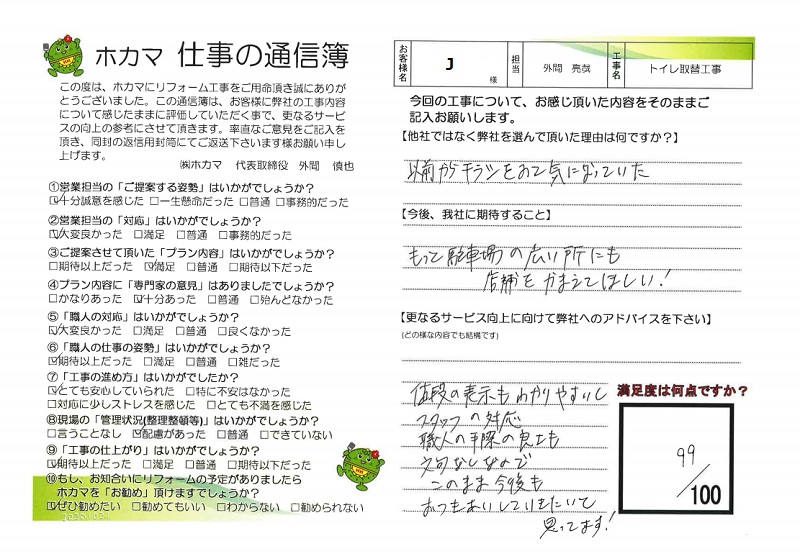 ホカマ 仕事の通信簿
この度は、ホカマにリフォーム工事をご用命頂き誠にありが
とうございました。この通信簿は、お客様に弊社の工事内容
について感じたままに評価していただく事で、更なるサービ
スの向上の参考にさせて頂きます。率直なご意見をご記入を
頂き、同封の返信用封筒にてご返送下さいます様お願い申し
上げます。
㈱ホカマ 代表取締役 外間 慎也
①営業担当の「ご提案する姿勢」はいかがでしょうか?
☑十分誠意を感じた □一生懸命だった □普通 □事務的だった
②営業担当の「対応」はいかがでしょうか?
☑大変良かった □満足 □普通 □事務的だった
③ご提案させて頂いた「プラン内容」はいかがでしょうか?
□期待以上だった ☑満足 □普通 □期待以下だった
④プラン内容に「専門家の意見」はありましたでしょうか?
□かなりあった ☑十分あった □普通 □殆んどなかった
⑤「職人の対応」はいかがでしょうか?
☑大変良かった □満足 □普通 □良くなかった
⑥「職人の仕事の姿勢」はいかがでしょうか?
☑期待以上だった □満足 □普通 □雑だった
⑦「工事の進め方」はいかがでしたか?
☑とても安心していられた □特に不安はなかった
□対応に少しストレスを感じた □とても不満を感じた
⑧現場の「管理状況(整理整頓等)」はいかがでしょうか?
□言うことなし ☑配慮があった □普通 □できていない
⑨「工事の仕上がり」はいかがでしょうか?
☑期待以上だった □満足 □普通 □期待以下だった
⑩もし、お知合いにリフォームの予定がありましたら
ホカマを「お勧め」頂けますでしょうか?
☑ぜひ勧めたい □勧めてもいい □わからない □勧められない
お客様名 J 様 担当 外間 亮哉 工事名 トイレ取替工事
今回の工事について、お感じ頂いた内容をそのままご
記入お願いします。
【他社ではなく弊社を選んで頂いた理由は何ですか?】
以前からチラシをみて気になっていた
【今後、我社に期待すること】
もって駐車場の広い所にも
店舗をかまえてほしい!
【更なるサービス向上に向けて弊社へのアドバイスを下さい】
(どの様な内容でも結構です)
値段の表示もわかりやすいし
スタッフの対応
職人の手際の良さも
文句なしなので
このまま今後も
おつきあいしていきたいと
思ってます!
満足度は何点ですか?
99/100